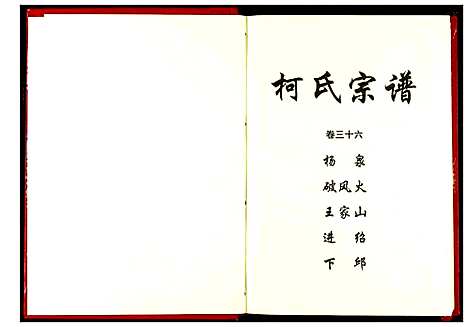 柯氏宗谱
卷三十六
杨泉
破风火
王家山
进绍
下邱